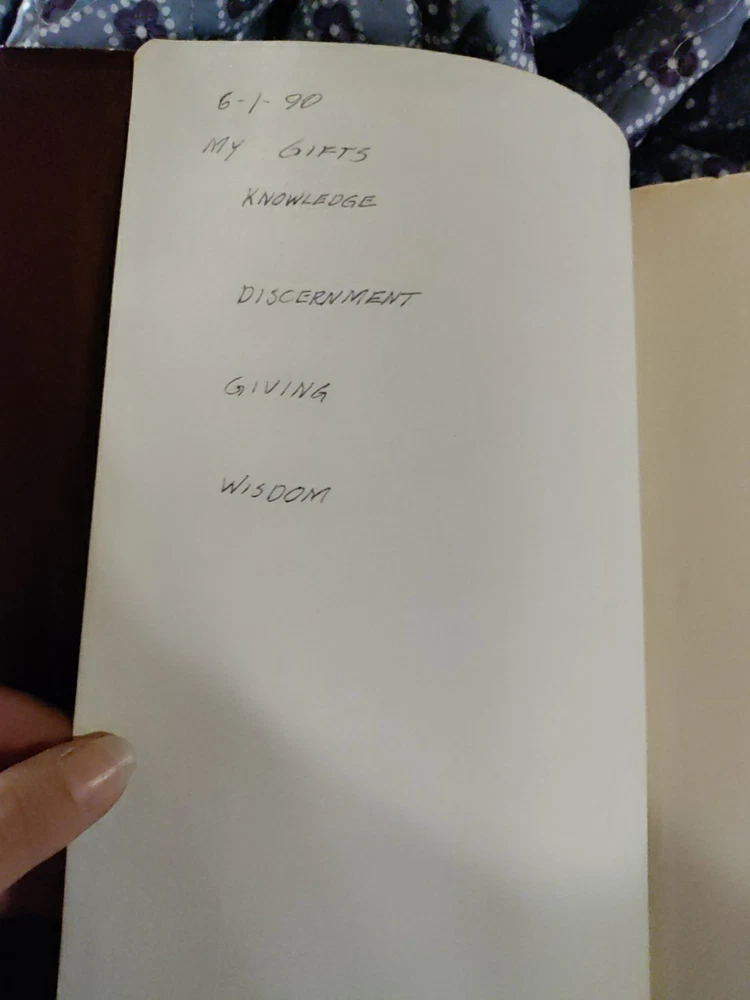 6-1-90
MY GIFTS
KNOWLEDGE
DISCERNMENT
GIVING
WISDOM